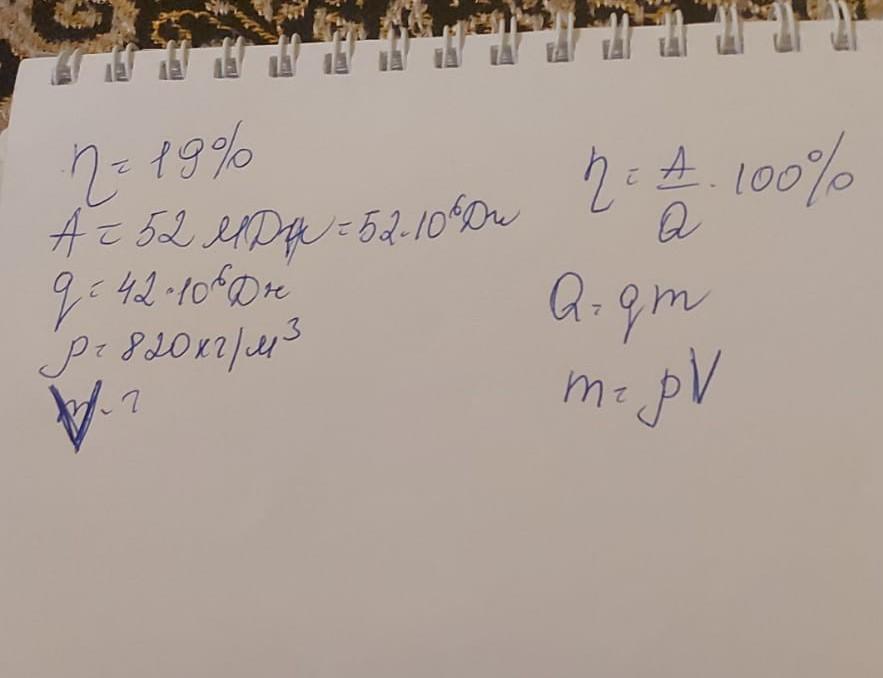 η = 19%
A = 52 МДж = 52·10⁶Дж
q = 42·10⁶Дж
ρ = 820кг/м³
V - ?
η = A/Q · 100%
Q = qm
m = ρV